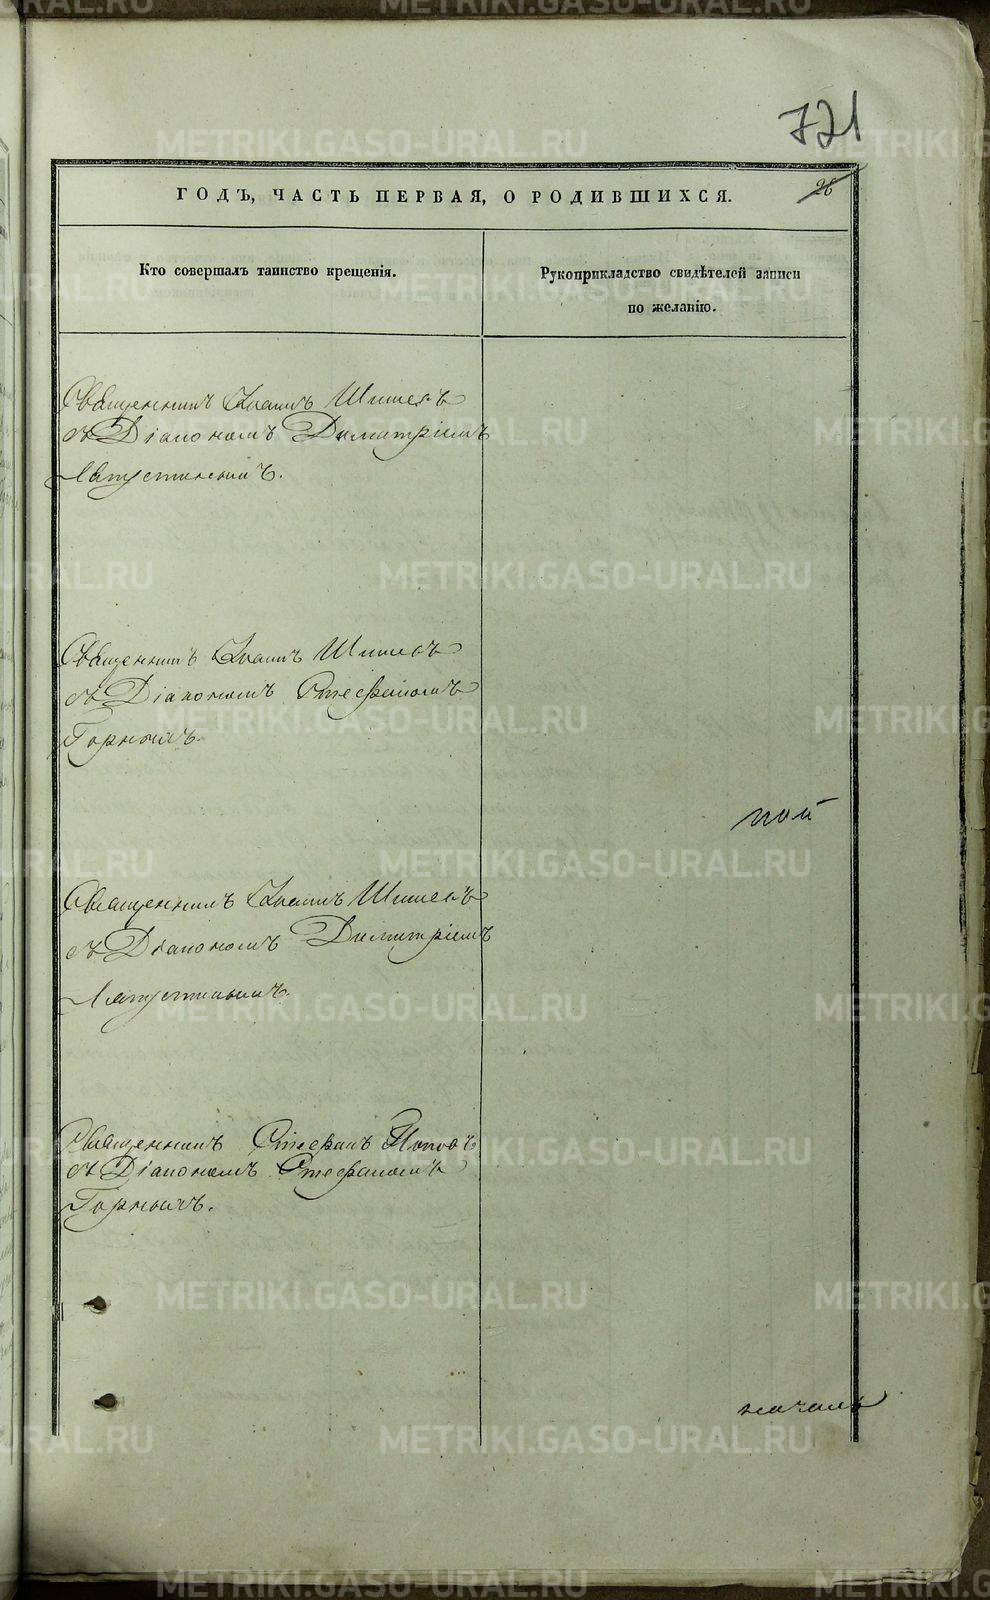 721
26
ГОДЪ, ЧАСТЬ ПЕРВАЯ, О РОДИВШИХСЯ.
Кто совершалъ таинство крещенія.
Рукоприкладство свидѣтелей записи
по желанію.
Священникъ Іоаннъ Шишевъ
съ Діакономъ Димитріемъ
Лапустинымъ.
Священникъ Іоаннъ Шишевъ
съ Діакономъ Стефаномъ
Горныхъ.
ной
Священникъ Іоаннъ Шишевъ
съ Діакономъ Димитріемъ
Лапустинымъ.
Священникъ Стефанъ Поповъ
съ Діакономъ Стефаномъ
Горныхъ.
началь
METRIKI.GASO-URAL.RU